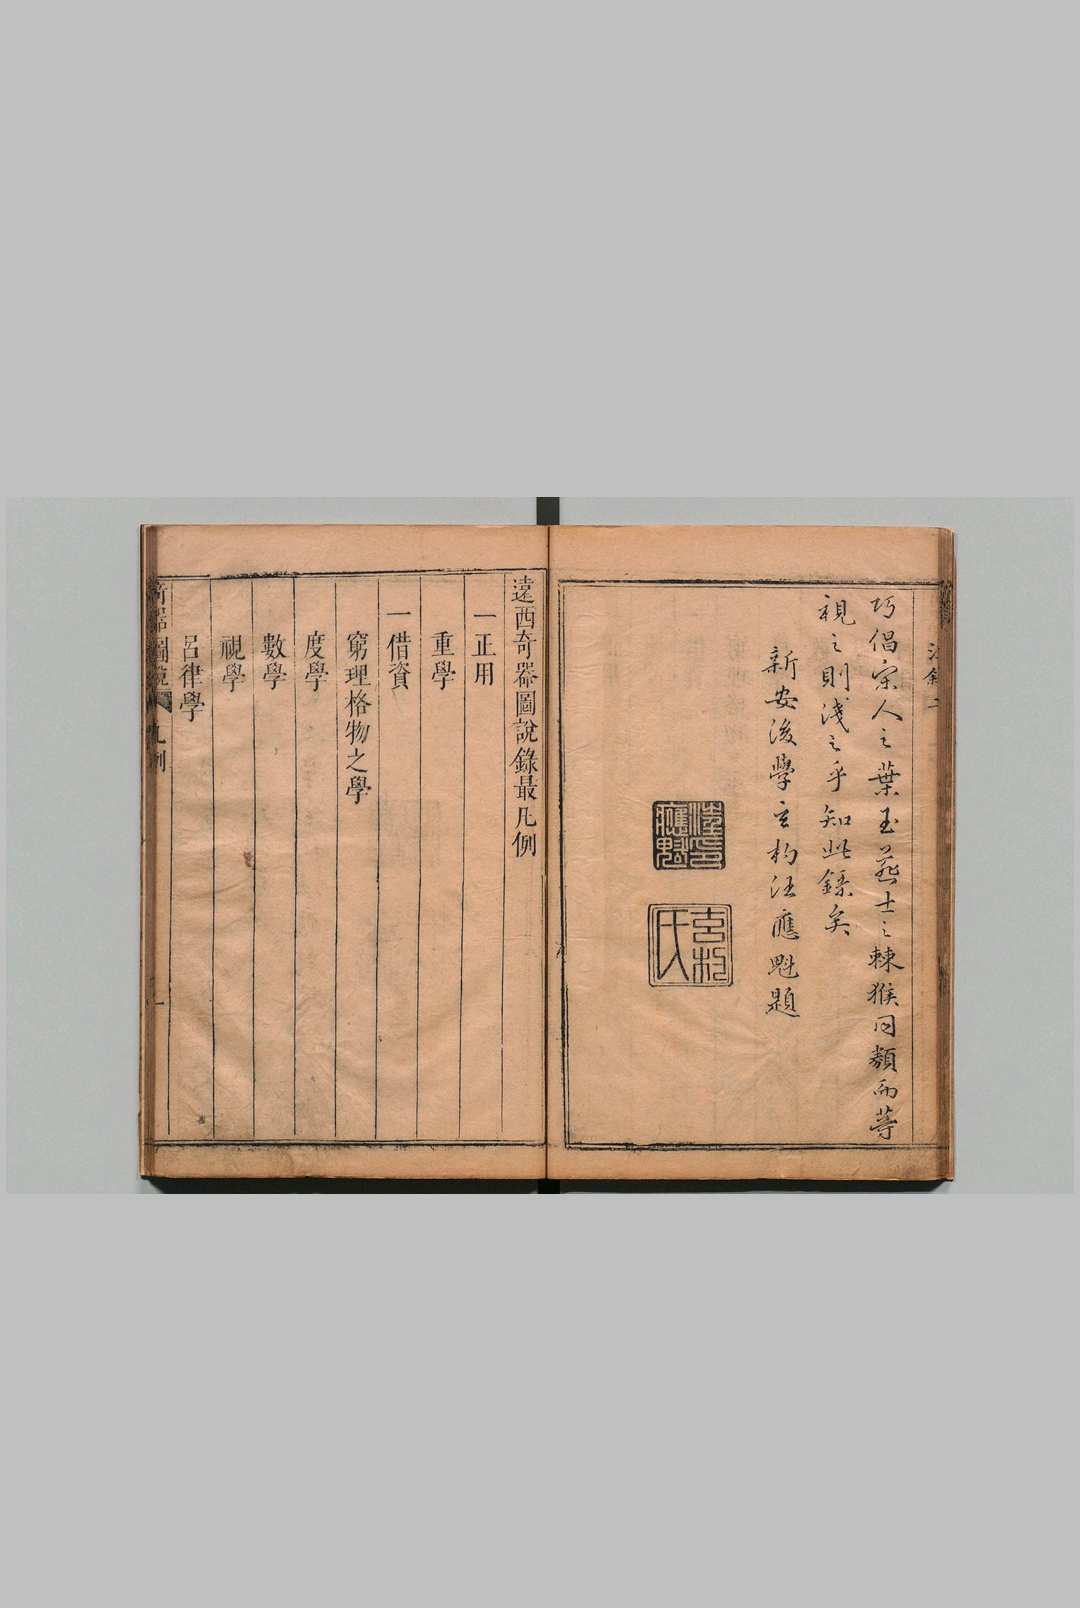 巧倡宋人之葉玉燕士之棘猴同類而等
視之則淺之乎知此錄矣
新安後學玄杓汪應魁題
汪應魁印
玄杓氏
遠西奇器圖說錄最凡例
一正用
重學
一借資
窮理格物之學
度學
數學
視學
呂律學
奇器圖說 凡例 一